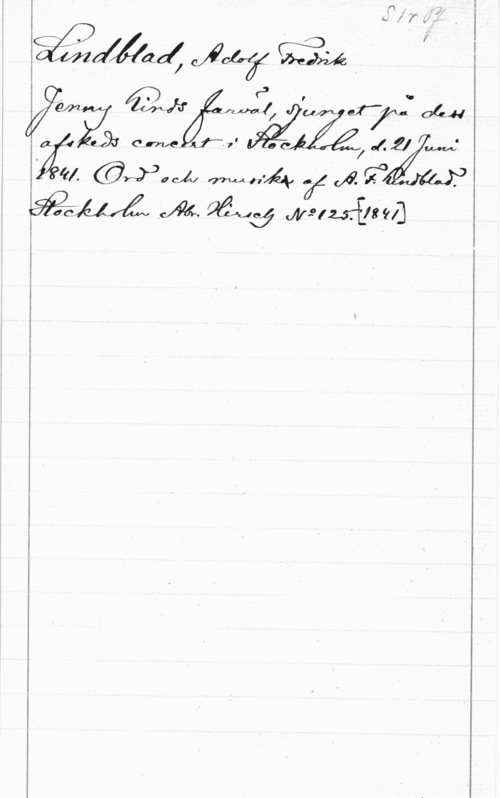 S/v Of
Lindblad, Adolf Fredrik
Jenny Linds farväl, sjunget på dess
afskeds concert i Stockholm, d. 21 Juni
1841. Ord och musik af A. F. Lindblad.
Stockholm Abr. Hirsch No 125. [1841]